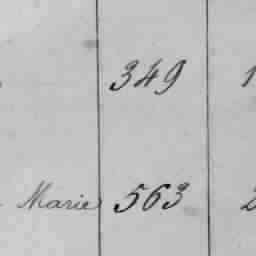 349 1
Marie 563 2